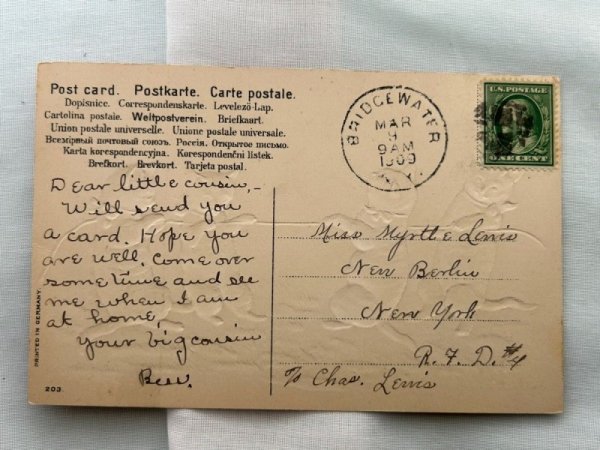 Post card. Postkarte. Carte postale.
Dopisnice. Correspondenskarte. Levelező-Lap.
Cartolina postale. Weltpostverein. Briefkaart.
Union postale universelle. Unione postale universale.
Всемірный почтовый союзъ. Россія. Открытое письмо.
Karta korespondencyjna. Korespondenční listek.
Brefkort. Brevkort. Tarjeta postal.
BRIDGEWATER
MAR
9
9 AM
1909
N.Y.
U.S. POSTAGE
ONE CENT
Dear little cousin,-
Will send you
a card. Hope you
are well. Come over
sometime and see
me when I am
at home,
your big cousin
Miss Myrtle Lewis
New Berlin
New York
R.F.D. #4
℅ Chas. Lewis
PRINTED IN GERMANY.
203